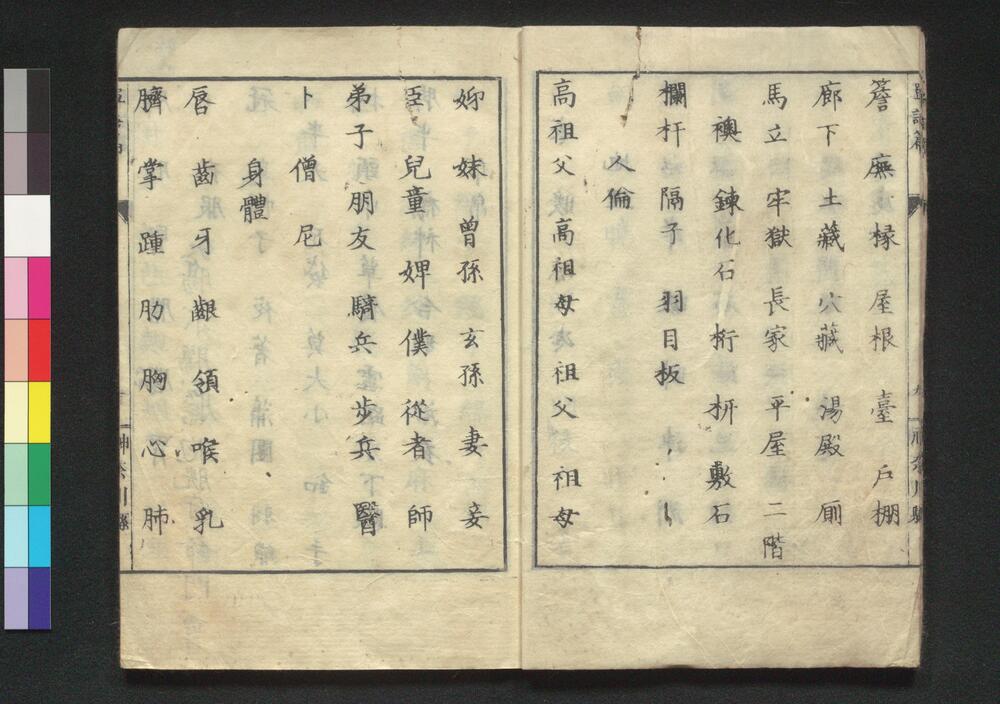 簷 廡 椽 屋根 臺 戸棚
廊下 土藏 穴藏 湯殿 厠
馬立 牢獄 長家 平屋 二階
襖 鍊化石 桁 枅 敷石
欄杆 隔子 羽目板
人倫
高祖父 高祖母 祖父 祖母
姉 妹 曾孫 玄孫 妻 妾
臣 兒童 婢 僕 從者 師
弟子 朋友 騎兵 步兵 醫
卜 僧 尼
身體
唇 齒 牙 齦 領 喉 乳
臍 掌 踵 肋 胸 心 肺